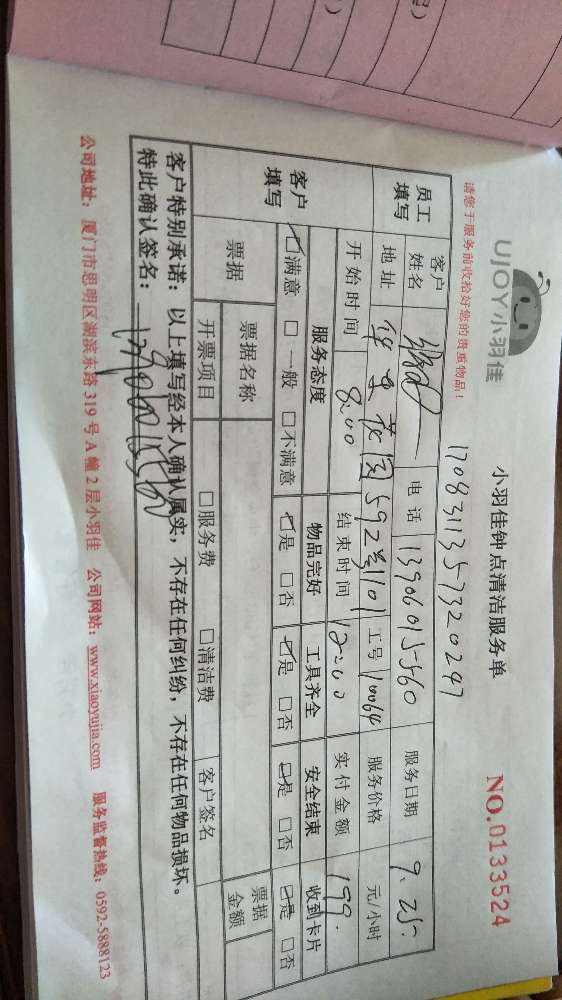 UJOY小羽佳
小羽佳钟点清洁服务单
NO.0133524
请您于服务前收拾好您的贵重物品！
170831135732029
员工填写
客户姓名 电话 13906015560 服务日期 9.25.
地址 华 花园592号1101 工号 10064 服务价格 元/小时
开始时间 8:00 结束时间 12:00 实付金额 199.
客户填写
服务态度 物品完好 工具齐全 安全结束 收到卡片
☑满意 □一般 □不满意 ☑是 □否 ☑是 □否 ☑是 □否 ☑是 □否
票据 票据名称 票据金额
开票项目 □服务费 □清洁费 客户签名
客户特别承诺：以上填写经本人确认属实，不存在任何纠纷，不存在任何物品损坏。
特此确认签名：
公司地址：厦门市思明区湖滨东路319号A幢2层小羽佳 公司网站：www.xiaoyujia.com 服务监督热线：0592-5888123